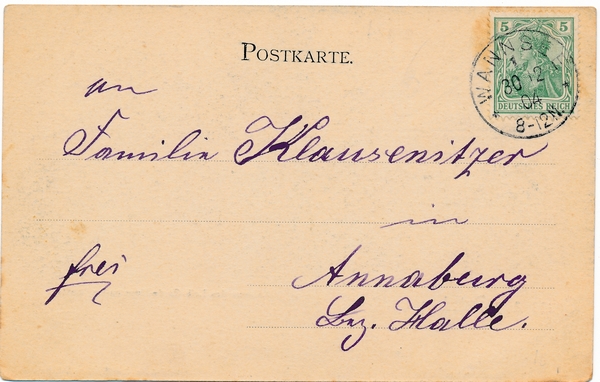 POSTKARTE.
5 5
DEUTSCHES REICH
WANNSEE
1
30 12
04
8-12N
an
Familie Klausenitzer
in
frei
Annaburg
Bez. Halle.